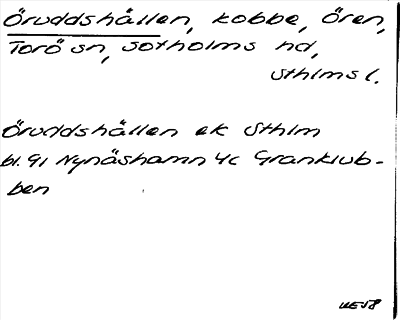 Öruddshållen, kobbe, Ören,
Torö sn, Sotholms hd,
Sthlms l.
Öruddshållen ek Sthlm
bl. 91 Nynäshamn 4c Granklub-
ben